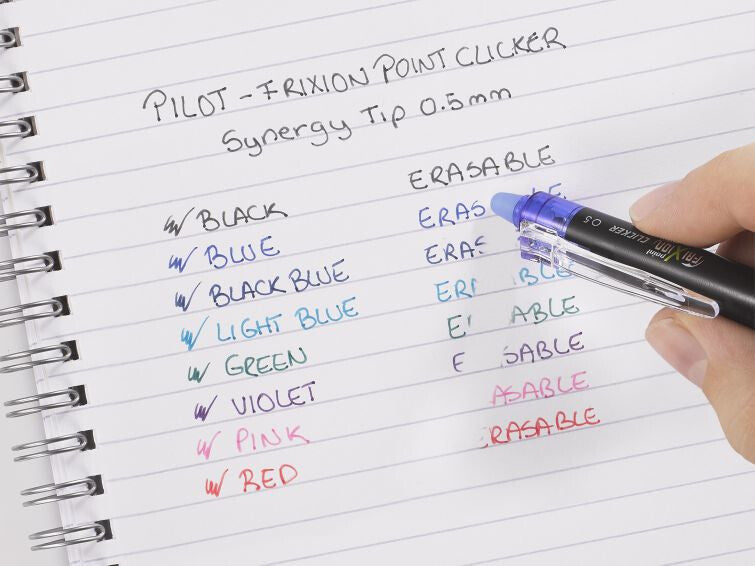 PILOT - FRIXION POINT CLICKER
Synergy Tip 0.5mm
ERASABLE
BLACK ERAS BLE
BLUE ERAS
BLACK BLUE ER BLE
LIGHT BLUE E ABLE
GREEN E SABLE
VIOLET ASABLE
PINK RASABLE
RED
point FRIXION CLICKER 0.5